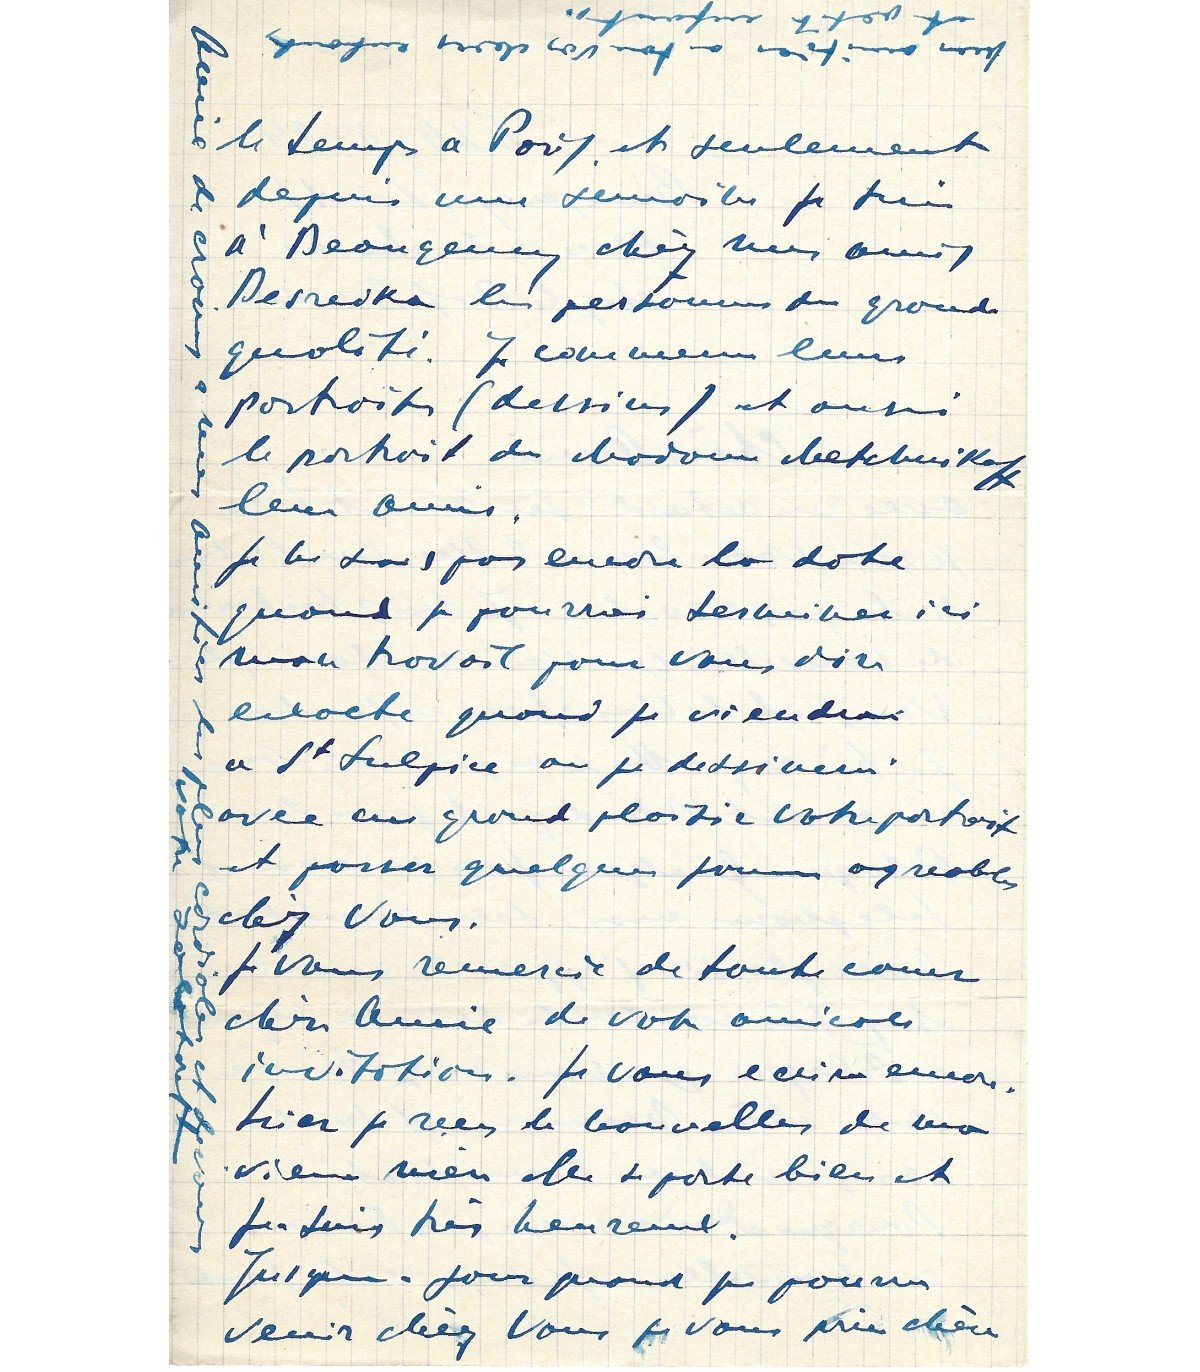 le temps a Paris, et seulement
depuis une semaine je suis
à Beaugency chez mes amis
Besredka les personnes de grande
qualité. Je commence leurs
portraits (dessins) et aussi
le portrait de Madame Metchnikoff
leur amis.
Je ne sais pas encore la date
quand je pourrai terminer ici
mon travail pour vous dire
exacte quand je viendrai
a St Sulpice ou je dessinerai
avec un grand plaisir votre portrait
et passer quelques jours agreables
chez vous.
Je vous remercie de toute coeur
chère Amie de votre amicale
invitation. Je vous ecrire encore.
hier je reçu de nouvelles de ma
vieille mère elle se porte bien et
je suis très heureux.
Jusque - jour quand je pourrai
venir chez vous je vous prie chère
Amie de croire a mes amitiés les plus cordiales et devoué
votre Zolotareff
pour amitiés a tous vos chers enfants
et petit enfants.